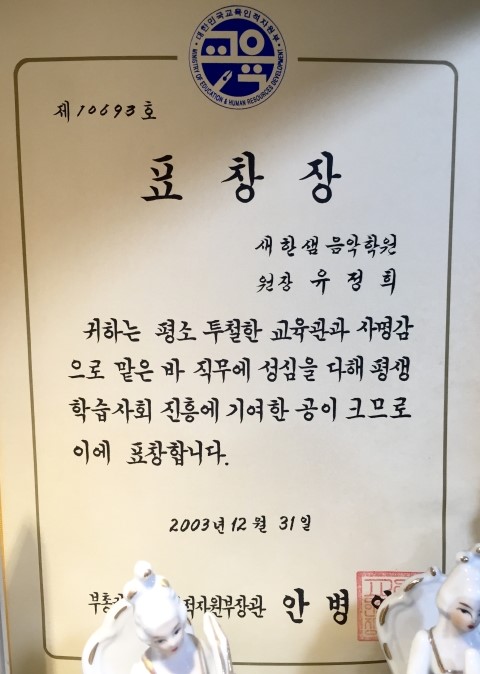 대한민국교육인적자원부
교육
MINISTRY OF EDUCATION & HUMAN RESOURCES DEVELOPMENT
제 10693 호
표 창 장
새한샘 음악학원
원장 유 정 희
귀하는 평소 투철한 교육관과 사명감
으로 맡은 바 직무에 성심을 다해 평생
학습사회 진흥에 기여한 공이 크므로
이에 표창합니다.
2003년 12월 31일
부총 적자원부장관 안 병